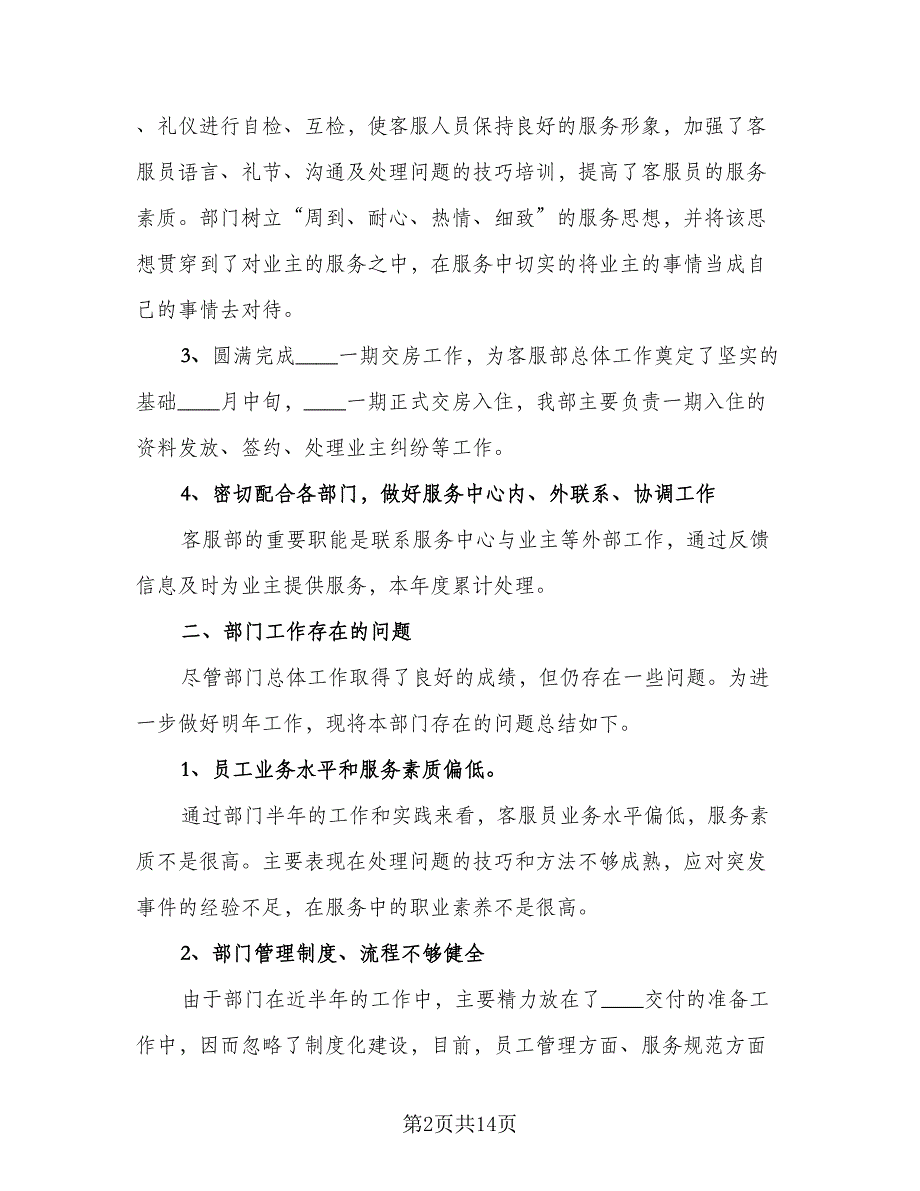 、礼仪进行自检、互检，使客服人员保持良好的服务形象，加强了客
服员语言、礼节、沟通及处理问题的技巧培训，提高了客服员的服务
素质。部门树立“周到、耐心、热情、细致”的服务思想，并将该思
想贯穿到了对业主的服务之中，在服务中切实的将业主的事情当成自
己的事情去对待。
3、圆满完成____一期交房工作，为客服部总体工作奠定了坚实的
基础____月中旬，____一期正式交房入住，我部主要负责一期入住的
资料发放、签约、处理业主纠纷等工作。
4、密切配合各部门，做好服务中心内、外联系、协调工作
客服部的重要职能是联系服务中心与业主等外部工作，通过反馈
信息及时为业主提供服务，本年度累计处理。
二、部门工作存在的问题
尽管部门总体工作取得了良好的成绩，但仍存在一些问题。为进
一步做好明年工作，现将本部门存在的问题总结如下。
1、员工业务水平和服务素质偏低。
通过部门半年的工作和实践来看，客服员业务水平偏低，服务素
质不是很高。主要表现在处理问题的技巧和方法不够成熟，应对突发
事件的经验不足，在服务中的职业素养不是很高。
2、部门管理制度、流程不够健全
由于部门在近半年的工作中，主要精力放在了____交付的准备工
作中，因而忽略了制度化建设，目前，员工管理方面、服务规范方面
第2页共14页